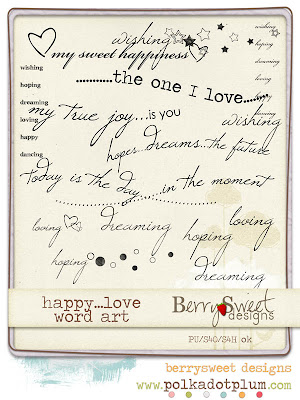 wishing
my sweet happiness
wishing
hoping
dreaming
loving
happy
dancing
wishing
hoping
dreaming
loving
............the one I love........
my true joy...is you
wishing
hopes...dreams...the future
Today is the day.....in the moment
loving
dreaming
loving
hoping
hoping
dreaming
happy...love
word art
BerrySweet
designs
PU/S4O/S4H ok
berrysweet designs
www.polkadotplum.com